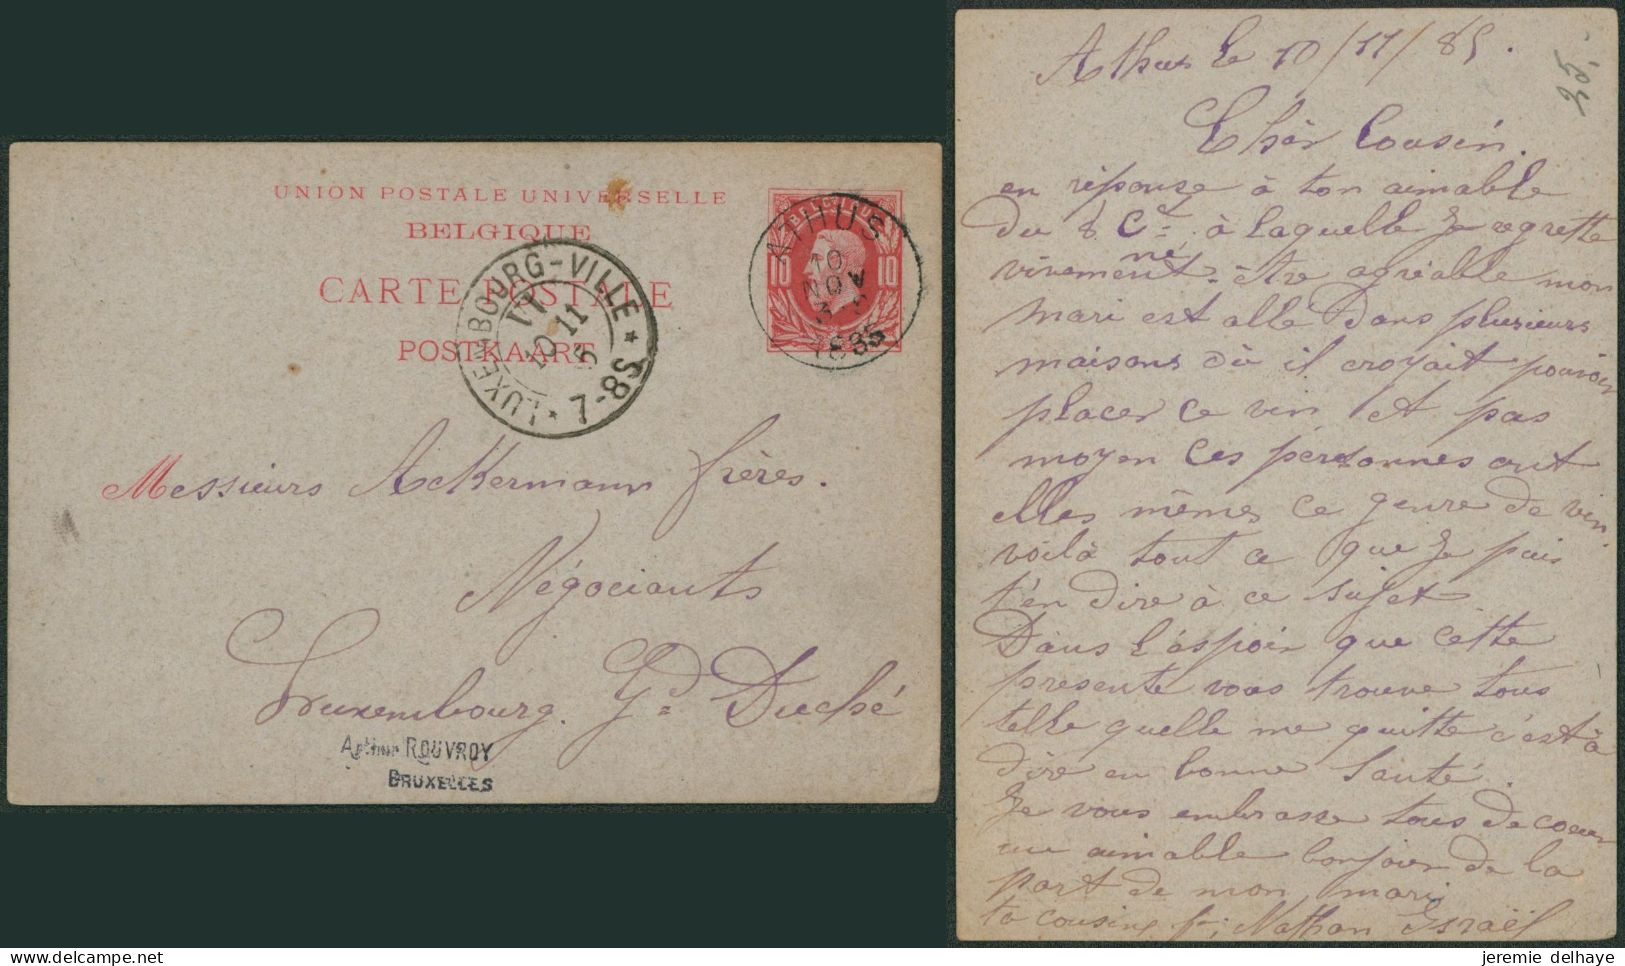 UNION POSTALE UNIVERSELLE
BELGIQUE
CARTE POSTALE
POSTKAART
BELGIQUE
10 10
ATHUS
10
NOV
1885
LUXEMBOURG-VILLE
VI
10 11
7-8S
Messieurs Ackermann frères.
Négociants
Luxembourg. Gd Duché
Arthur ROUVROY
BRUXELLES
Athus le 10/11/85.
25.-
Cher Cousin.
en réponse à ton aimable
du 8 Ct à laquelle Je regrette
vivement né être agréable mon
mari est allé Dans plusieurs
maisons où il croyait pouvoir
placer ce vin et pas
moyen ces personnes ont
elles mêmes ce genre de vin
voilà tout ce que Je puis
t'en dire à ce sujet
Dans l'espoir que cette
présente vous trouve tous
telle quelle me quitte c'est à
dire en bonne Santé.
Je vous embrasse tous de coeur
un aimable bonjour de la
part de mon mari
ta cousine Nathan Israël
jeremie delhaye